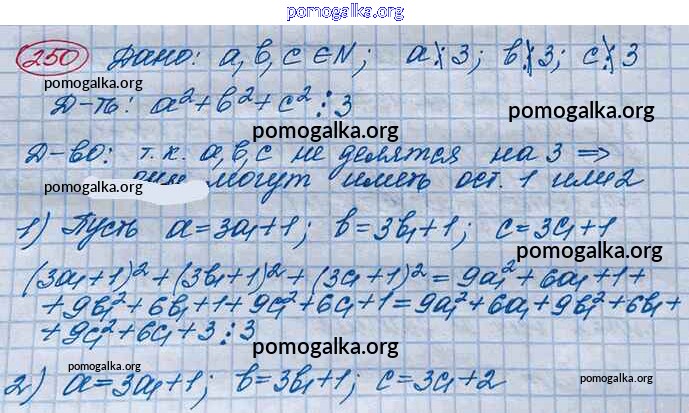 pomogalka.org
250 Дано: a, b, c ∈ N; a ⋮̸ 3; b ⋮̸ 3; c ⋮̸ 3
pomogalka.org
Д-ть: a² + b² + c² ⋮ 3
pomogalka.org
pomogalka.org
Д-во: т.к. a, b, c не делятся на 3 ⇒
pomogalka.org
они могут иметь ост. 1 или 2
pomogalka.org
1) Пусть a = 3a₁ + 1; b = 3b₁ + 1; c = 3c₁ + 1
pomogalka.org
(3a₁ + 1)² + (3b₁ + 1)² + (3c₁ + 1)² = 9a₁² + 6a₁ + 1 +
+ 9b₁² + 6b₁ + 1 + 9c₁² + 6c₁ + 1 = 9a₁² + 6a₁ + 9b₁² + 6b₁ +
+ 9c₁² + 6c₁ + 3 ⋮ 3
pomogalka.org
pomogalka.org
2) a = 3a₁ + 1; b = 3b₁ + 1; c = 3c₁ + 2
pomogalka.org
pomogalka.org